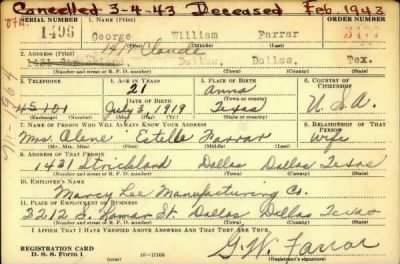 Cancelled 3-4-43 Deceased Feb. 1943
SERIAL NUMBER 1. NAME (Print) ORDER NUMBER
1496 George William Farrar
(First) (Middle) (Last)
1411 Claude
2. ADDRESS (Print)
1431 Strickland, Dallas, Dallas, Tex.
(Number and street or R. F. D. number) (Town) (County) (State)
3. TELEPHONE 4. AGE IN YEARS 5. PLACE OF BIRTH 6. COUNTRY OF CITIZENSHIP
21 Anna
DATE OF BIRTH (Town or county)
101 July 3 1919 Texas U.S.A.
(Exchange) (Number) (Mo.) (Day) (Yr.) (State or country)
7. NAME OF PERSON WHO WILL ALWAYS KNOW YOUR ADDRESS 8. RELATIONSHIP OF THAT PERSON
Mrs. Alene Estelle Farrar Wife
(Mr., Mrs., Miss) (First) (Middle) (Last)
9. ADDRESS OF THAT PERSON
1431 Strickland Dallas Dallas Texas
(Number and street or R. F. D. number) (Town) (County) (State)
10. EMPLOYER'S NAME
Marcy Lee Manufacturing Co.
11. PLACE OF EMPLOYMENT OR BUSINESS
3212 S. Lamar St. Dallas Dallas Texas
(Number and street or R. F. D. number) (Town) (County) (State)
I AFFIRM THAT I HAVE VERIFIED ABOVE ANSWERS AND THAT THEY ARE TRUE.
REGISTRATION CARD
D. S. S. Form 1 16-17105
G.W. Farrar
(Registrant's signature)